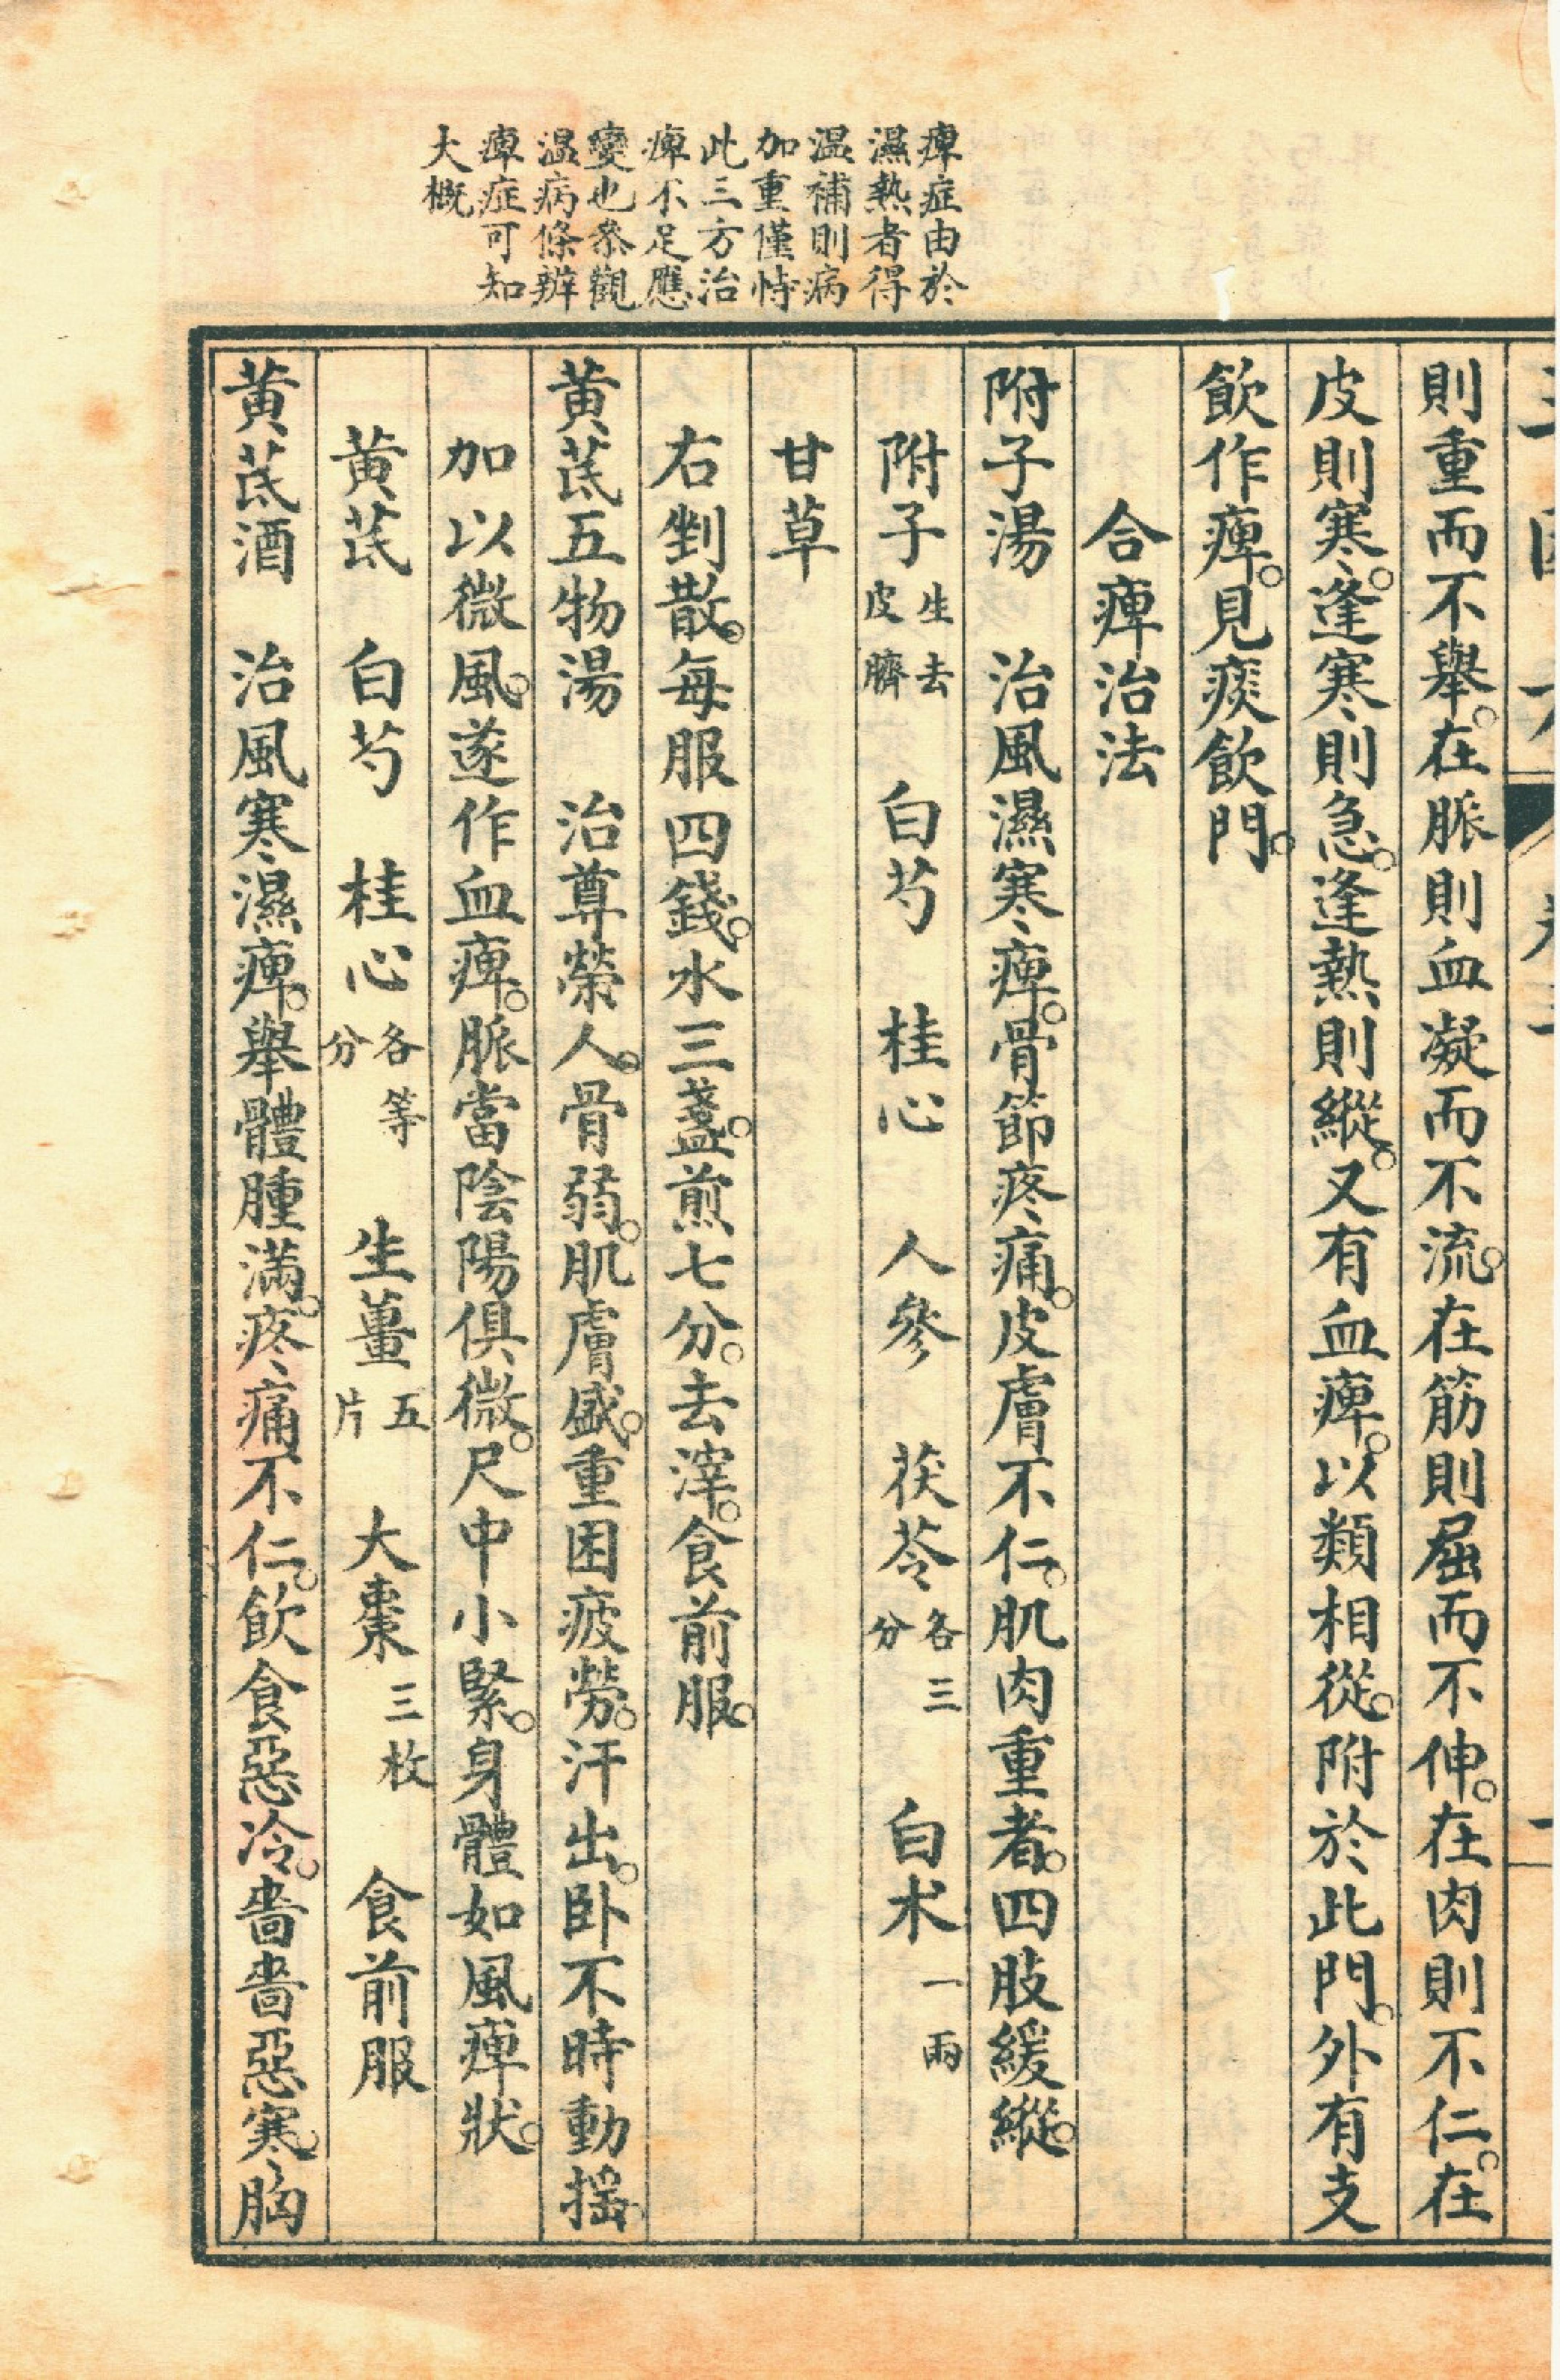 痺症由於
濕熱者得
温補則病
加重僅恃
此三方治
痺不足應
變也叅觀
温病條辨
痺症可知
大概
則重而不舉。在脈則血凝而不流。在筋則屈而不伸。在肉則不仁。在
皮則寒。逢寒則急。逢熱則縱。又有血痺。以類相從。附於此門。外有支
飲作痺。見痰飲門。
合痺治法
附子湯　治風濕寒痺。骨節疼痛。皮膚不仁。肌肉重者。四肢緩縱。
附子生去皮臍　白芍　桂心　人參　茯苓各三分　白术一兩
甘草
右剉散。每服四錢。水三盞。煎七分。去滓。食前服。
黃茋五物湯　治尊榮人。骨弱。肌膚盛。重困疲勞。汗出。卧不時動搖。
加以微風。遂作血痺。脈當陰陽俱微。尺中小緊。身體如風痺狀。
黃茋　白芍　桂心各等分　生薑五片　大棗三枚　食前服
黃茋酒　治風寒濕痺。舉體腫滿。疼痛不仁。飲食惡冷。嗇嗇惡寒。胸